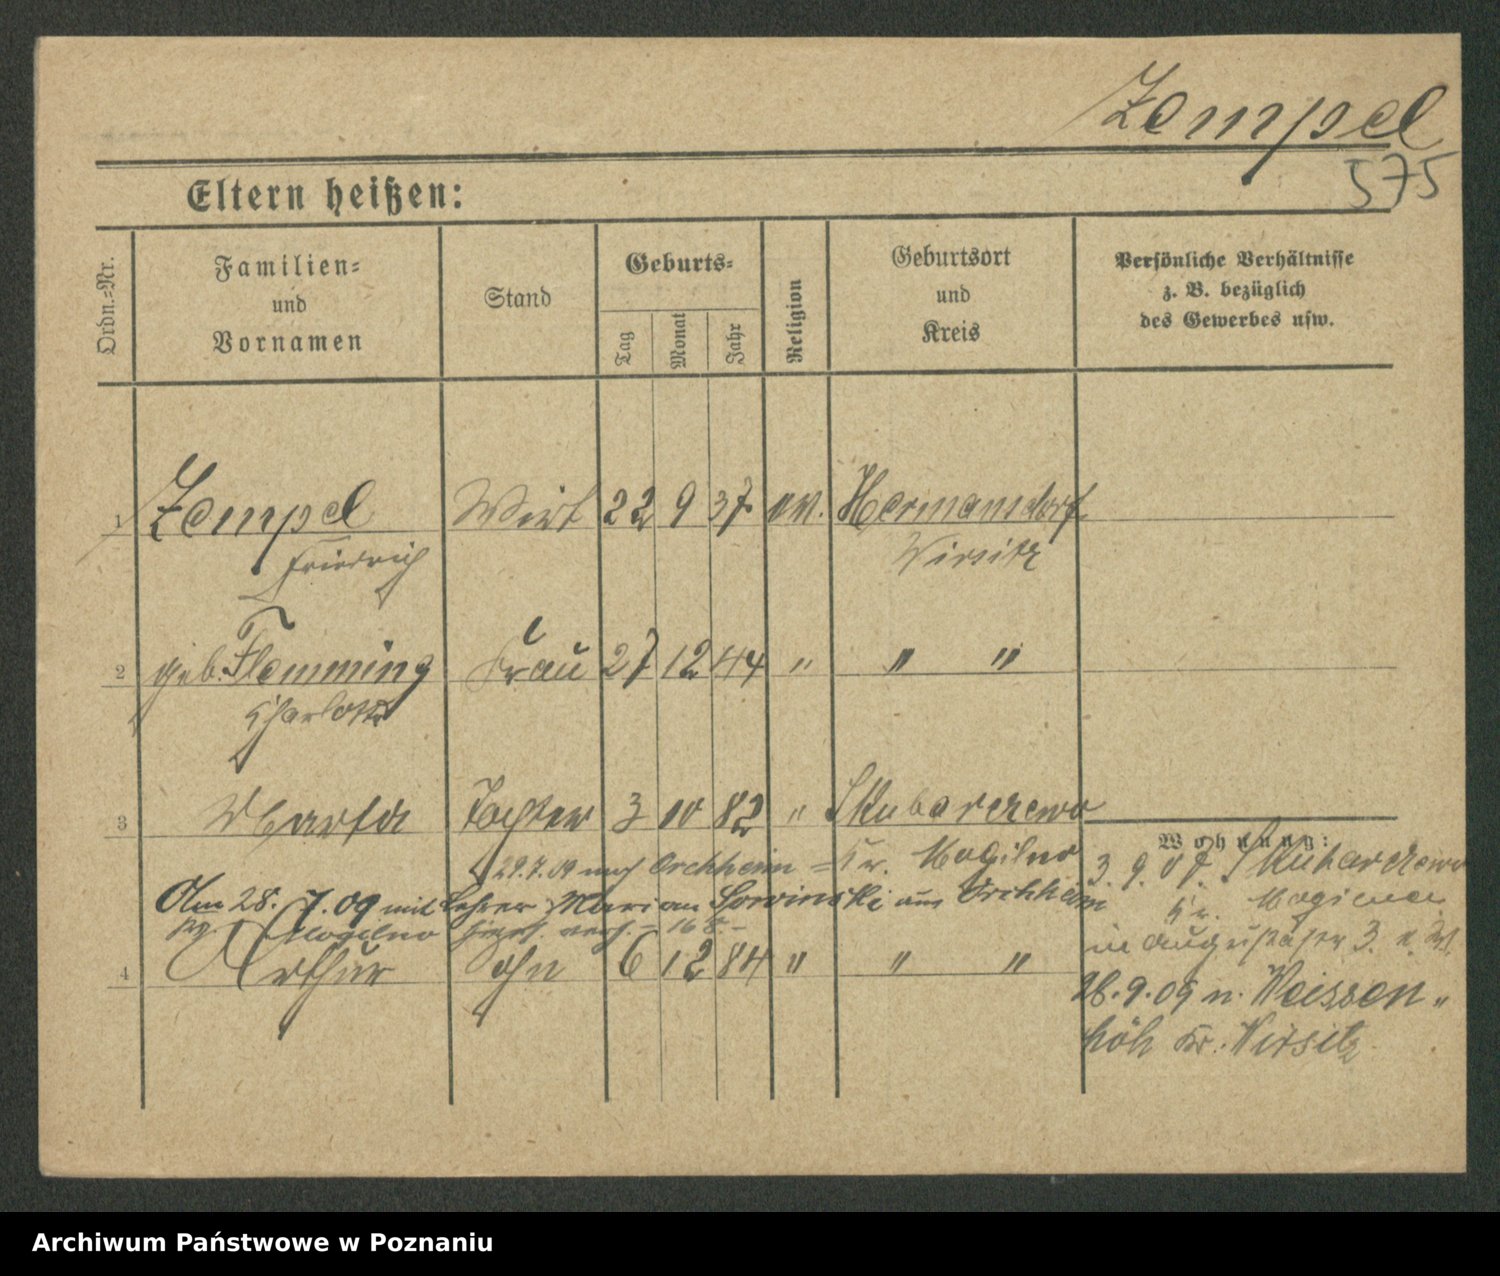 Zempel
575
Eltern heißen:
Ordn.=Nr.
Familien= und Vornamen
Stand
Geburts=
Tag
Monat
Jahr
Religion
Geburtsort und Kreis
Persönliche Verhältnisse
z. B. bezüglich
des Gewerbes usw.
1 Zempel Wirt 22 9 37 ev. Hermansdorf
Friedrich Wirsitz
2 geb. Flemming Frau 27 12 44 " " "
Charlotte
3 Martha Tochter 3 10 82 " Skubarczewo
29.7.09 nach Orchheim = Kr. Mogilno
Am 28. 7. 09 mit Lehrer Marian Sowinski aus Orchheim
Mogilno
4 Arthur Sohn 6 12 84 " " "
Wohnung:
3. 9. 07. Skubarczewo
Kr. Mogilno
in
28. 9. 09 n. Weissen"
höh Kr. Wirsitz
Archiwum Państwowe w Poznaniu